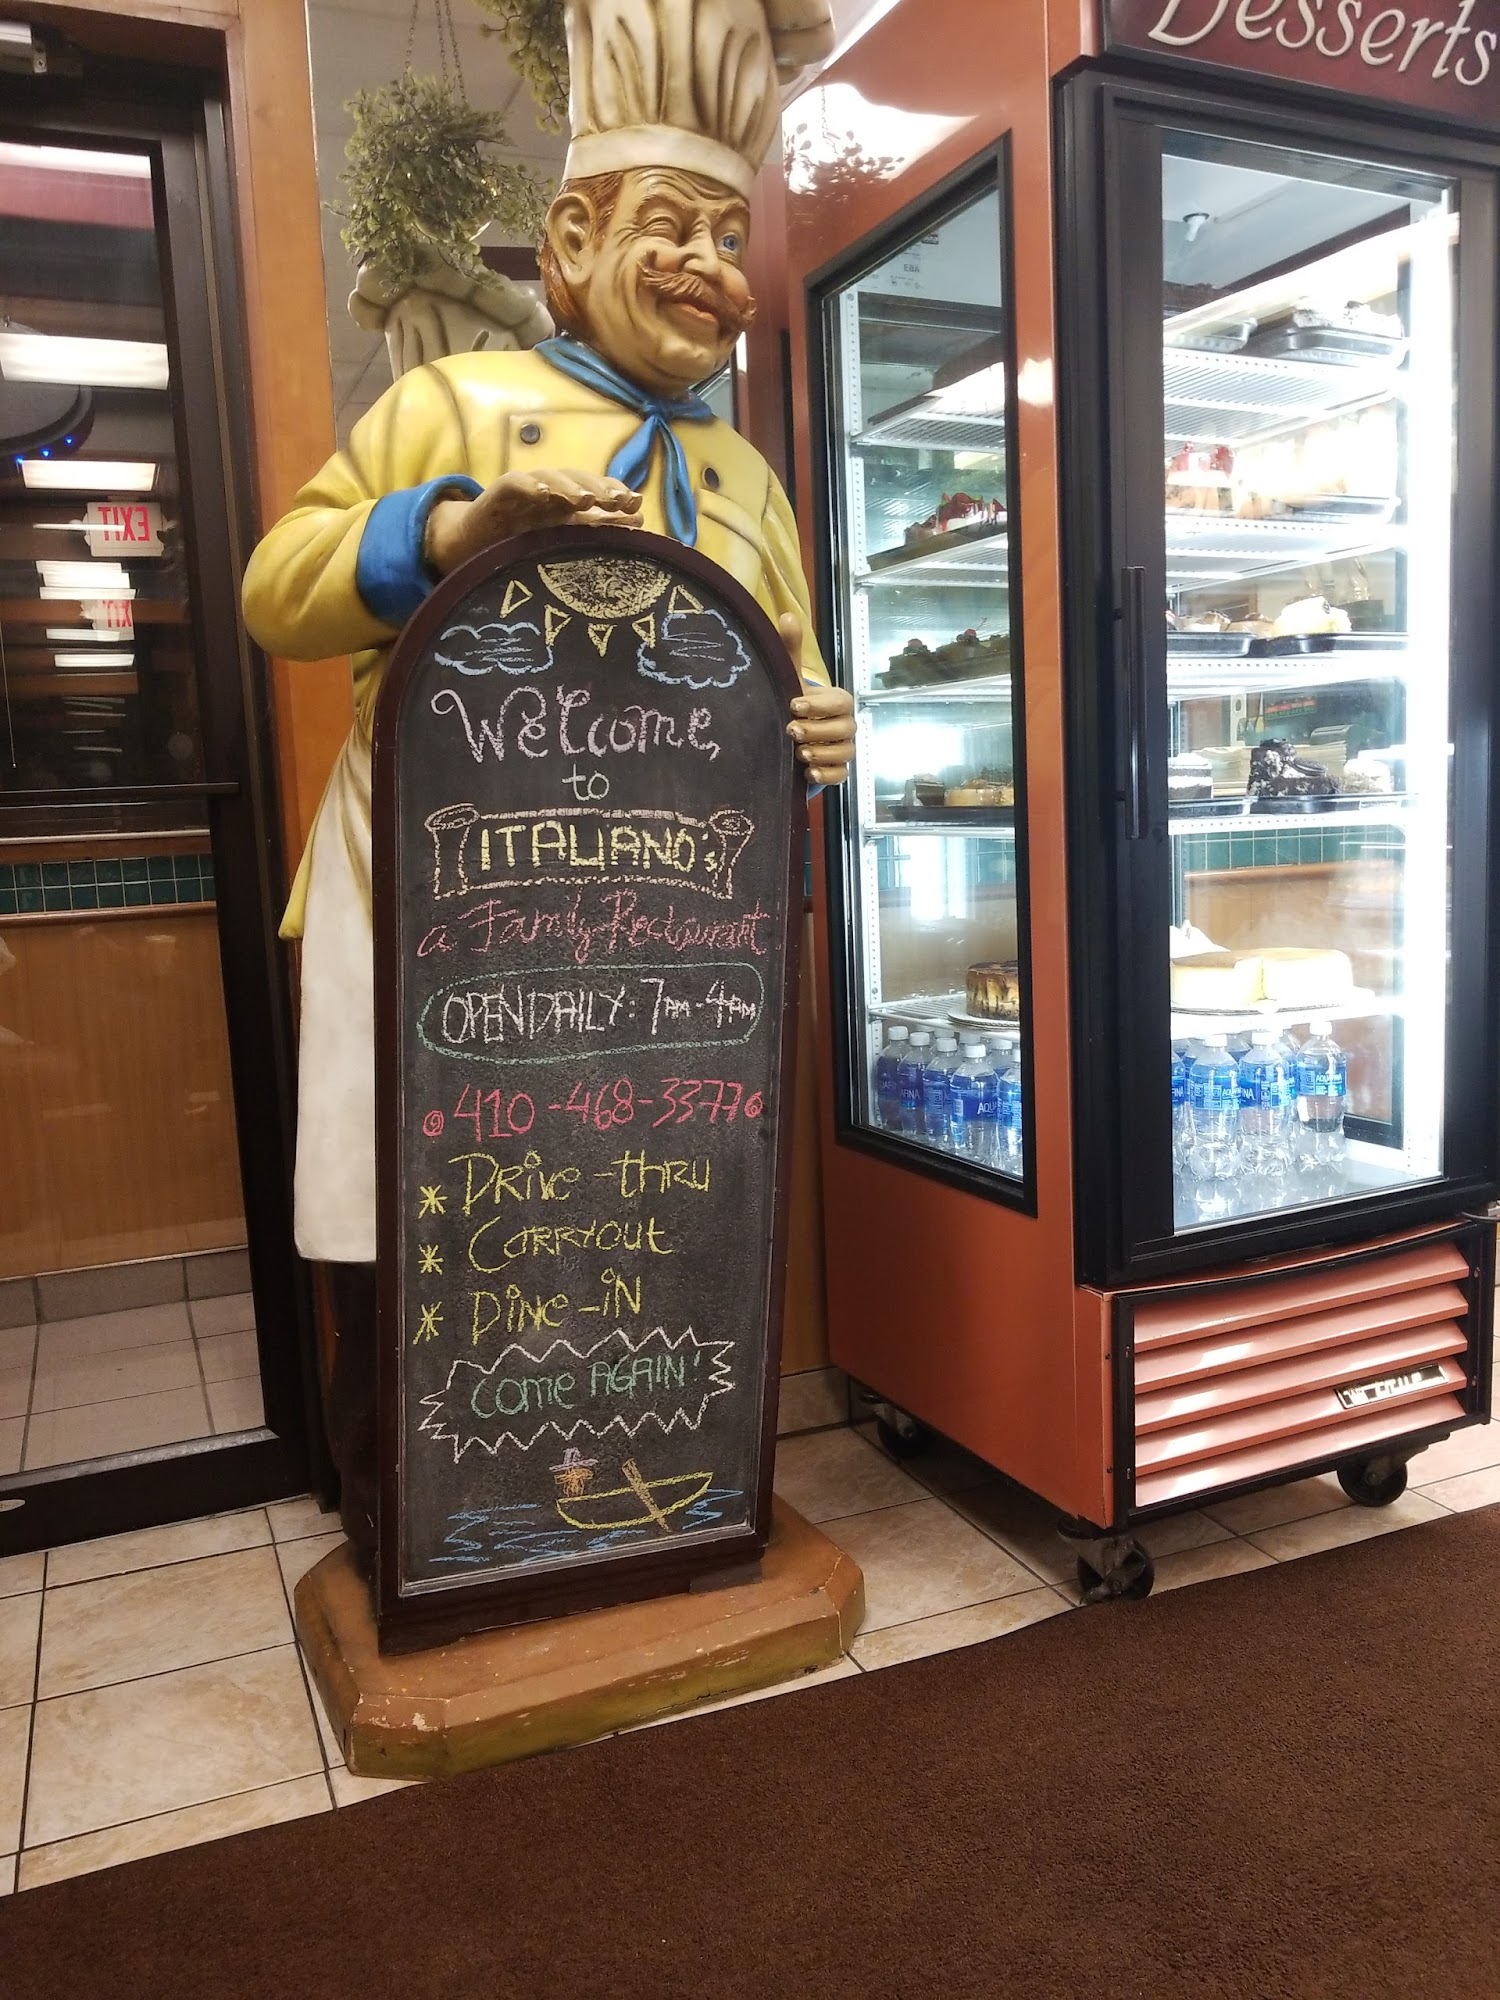 Desserts
EXIT
Welcome
to
ITALIANO's
a Family Restaurant
OPEN DAILY: 7AM-4AM
410-468-3377
* Drive-thru
* Carryout
* Dine-in
Come AGAIN!
AQUAFINA